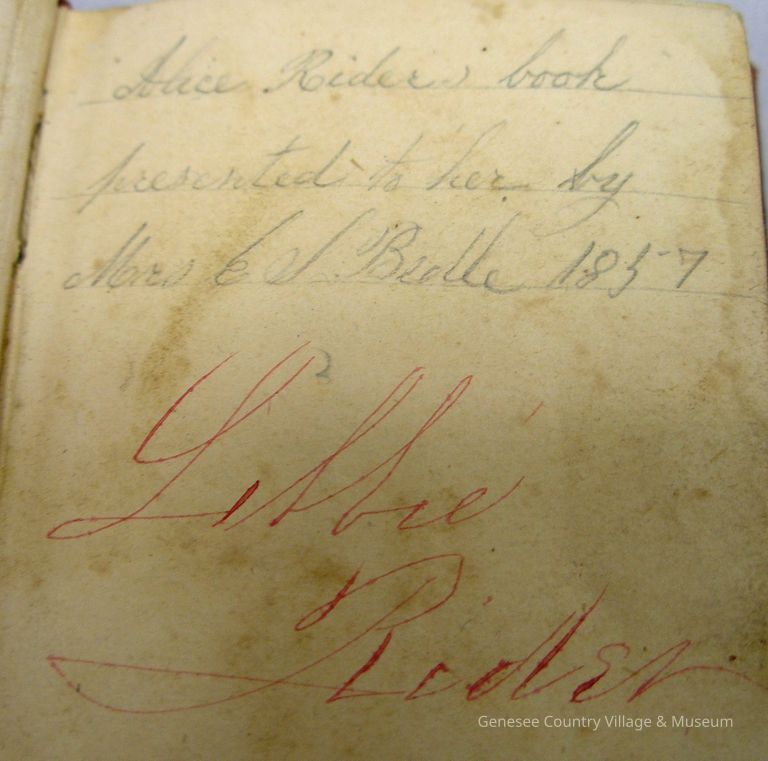 Alice Riders book
presented to her by
Mrs E S Bedle 1857
2
Libbie
Rider
Genesee Country Village & Museum